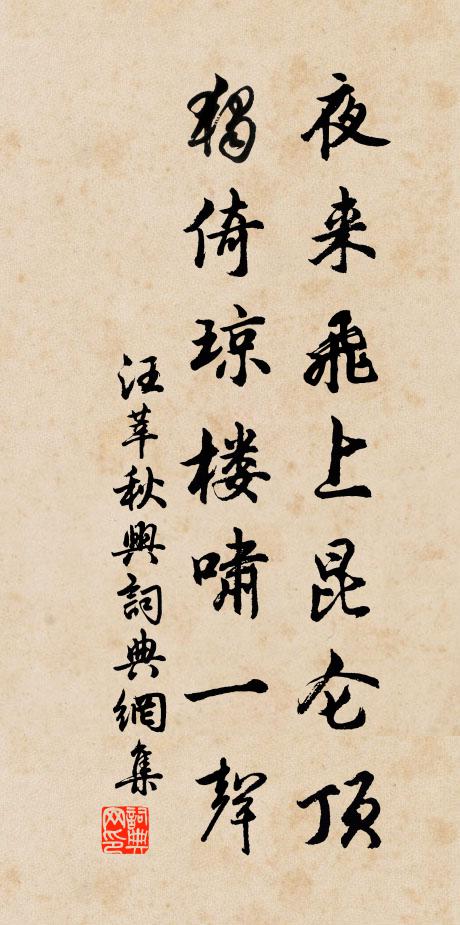 夜来飛上昆仑顶
獨倚琼楼嘯一聲
汪莘秋興詞典網集
詞典网印